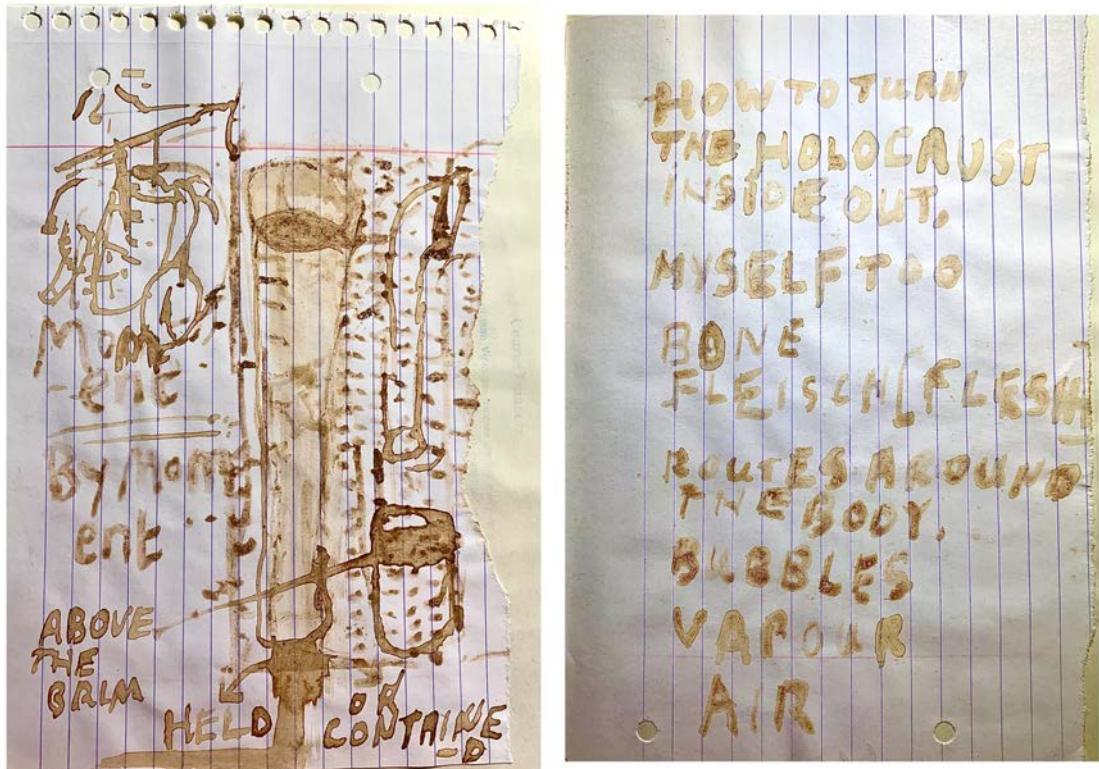 Mom
-ent
By Mom
ent
ABOVE
THE
BRIM
HELD OR
CONTAINE
-D
HOW TO TURN
THE HOLOCAUST
INSIDE OUT,
MYSELF TOO
BONE
FLEISCH [FLESH
ROUTES AROUND
THE BODY.
BUBBLES
VAPOUR
AIR